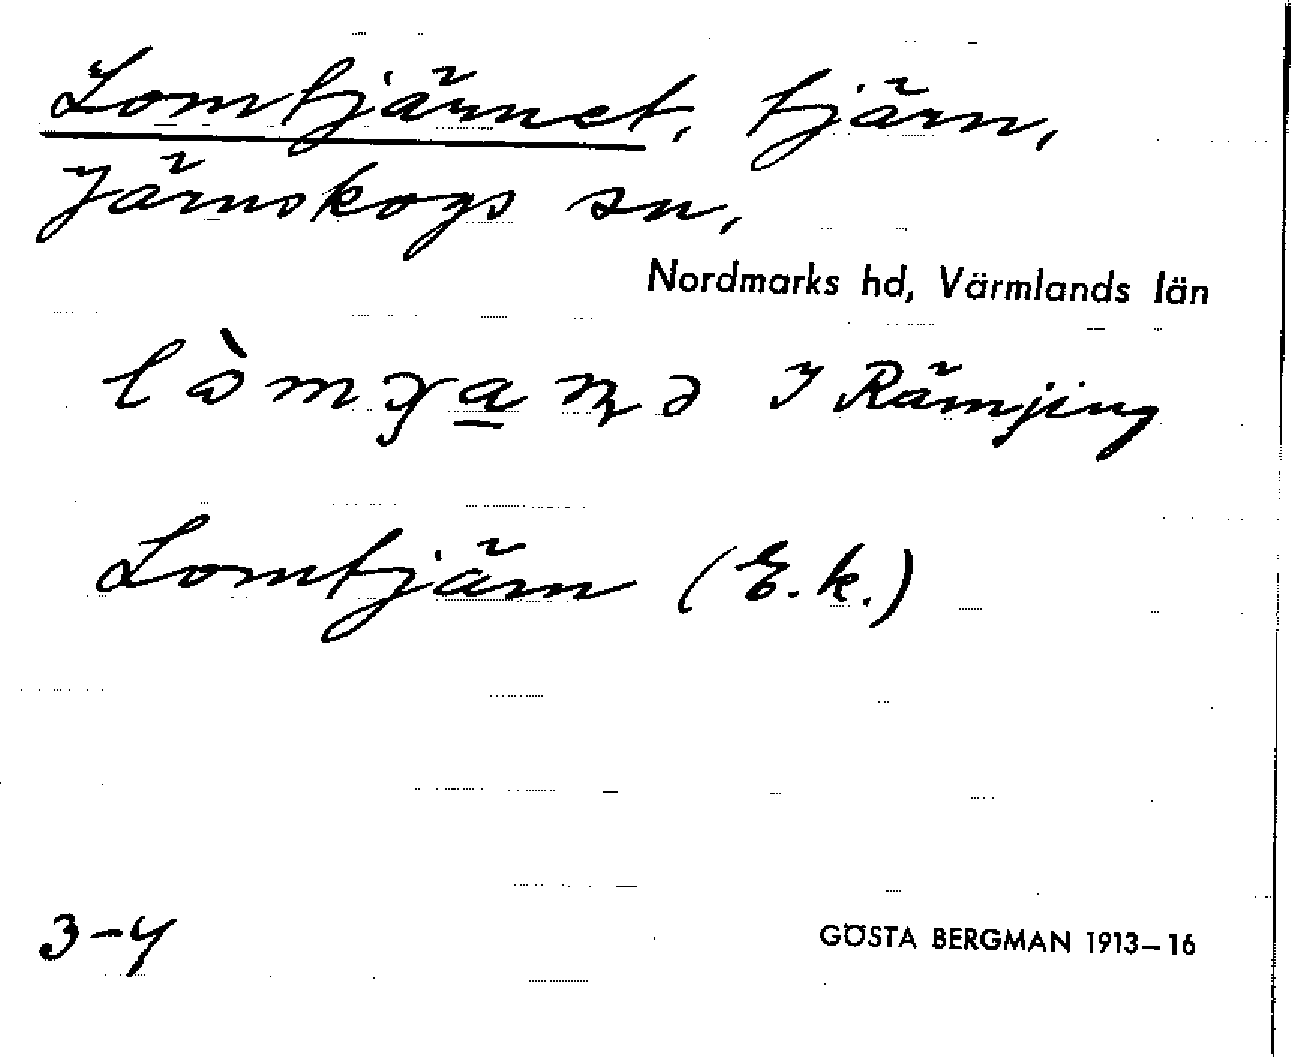 Lomtjärnet, tjärn,
Järnskogs sn,
Nordmarks hd, Värmlands län
Rämjing
Lomtjärn (E.k.)
3-4
GÖSTA BERGMAN 1913-16